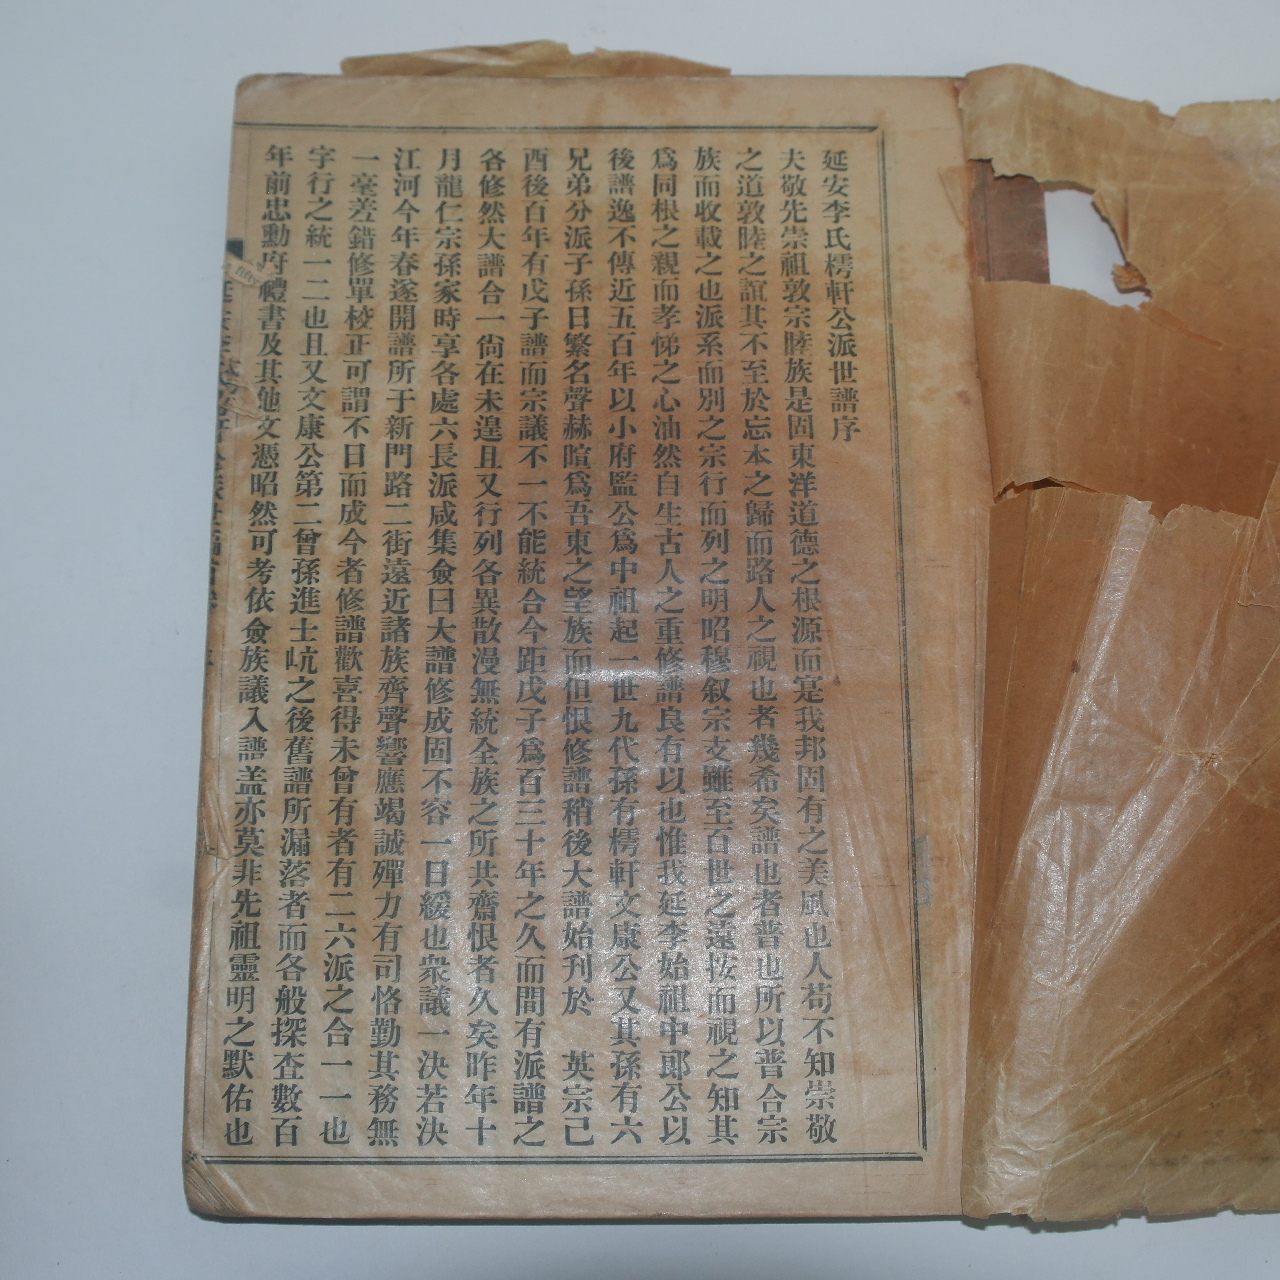 延安李氏樗軒公派世譜序
夫敬先崇祖敦宗睦族是固東洋道德之根源而寔我邦固有之美風也人苟不知崇敬
之道敦睦之誼其不至於忘本之歸而路人之視也者幾希矣譜也者普也所以普合宗
族而收載之也派系而別之宗行而列之明昭穆叙宗支雖至百世之遠按而視之知其
爲同根之親而孝悌之心油然自生古人之重修譜良有以也惟我延李始祖中郞公以
後譜逸不傳近五百年以小府監公爲中祖起一世九代孫有樗軒文康公又其孫有六
兄弟分派子孫日繁名聲赫暄爲吾東之望族而但恨修譜稍後大譜始刊於 英宗己
酉後百年有戊子譜而宗議不一不能統合今距戊子爲百三十年之久而間有派譜之
各修然大譜合一尙在未遑且又行列各異散漫無統全族之所共齎恨者久矣昨年十
月龍仁宗孫家時享各處六長派咸集僉曰大譜修成固不容一日緩也衆議一決若決
江河今年春遂開譜所于新門路二街遠近諸族齊聲響應竭誠殫力有司恪勤其務無
一毫差錯修單校正可謂不日而成今者修譜歡喜得未曾有者有二六派之合一一也
字行之統一二也且又文康公第二曾孫進士㞳之後舊譜所漏落者而各般探査數百
年前忠勳府禮書及其他文憑昭然可考依僉族議入譜盖亦莫非先祖靈明之默佑也